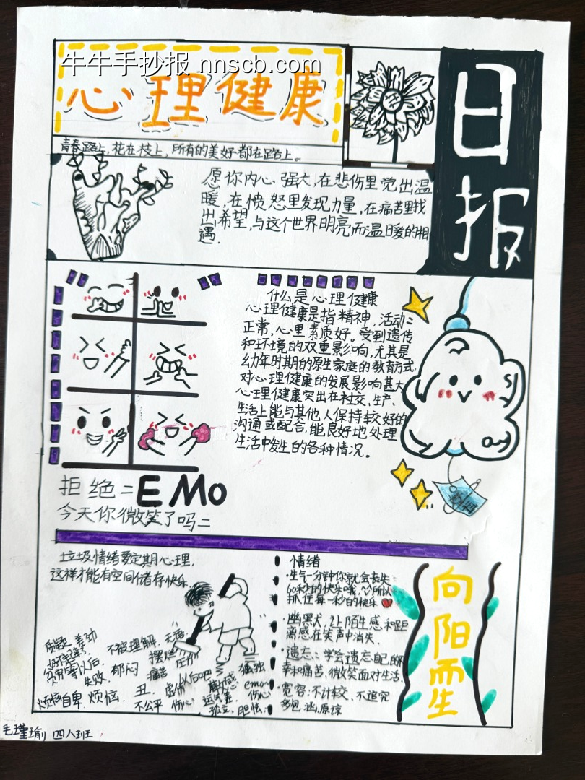 牛牛手抄报 nnscb.com
心理健康
日报
青春路上,花在枝上,所有的美好都在路上。
愿你内心强大,在悲伤里觉出温
暖,在愤怒里发现力量,在痛苦里找
出希望,与这个世界明亮而温暖的相
遇.
什么是心理健康
心理健康是指精神、活动
正常,心里素质好。受到遗传
和环境的双重影响,尤其是
幼年时期的原生家庭的教育方式,
对心理健康的发展影响甚大
心理健康突出在社交、生产、
生活上能与其他人保持较好的
沟通或配合,能良好地处理
生活中发生的各种情况。
拒绝 EMO
今天你微笑了吗
垃圾情绪要定期心理,
这样才能有空间储存快乐
情绪
生气一分钟你就会丧失
幽默犬,让陌生感和距
离感在笑声中消失
遗忘:学会遗忘
和痛苦,微笑面对生活
宽容:不计较、不追究
原谅
向阳而生
不被理解
失败
郁闷
摆烂
痛苦
压抑
孤独
自卑
烦恼
丑
不公平
伤心
emo
孤立
胆怯
四八班